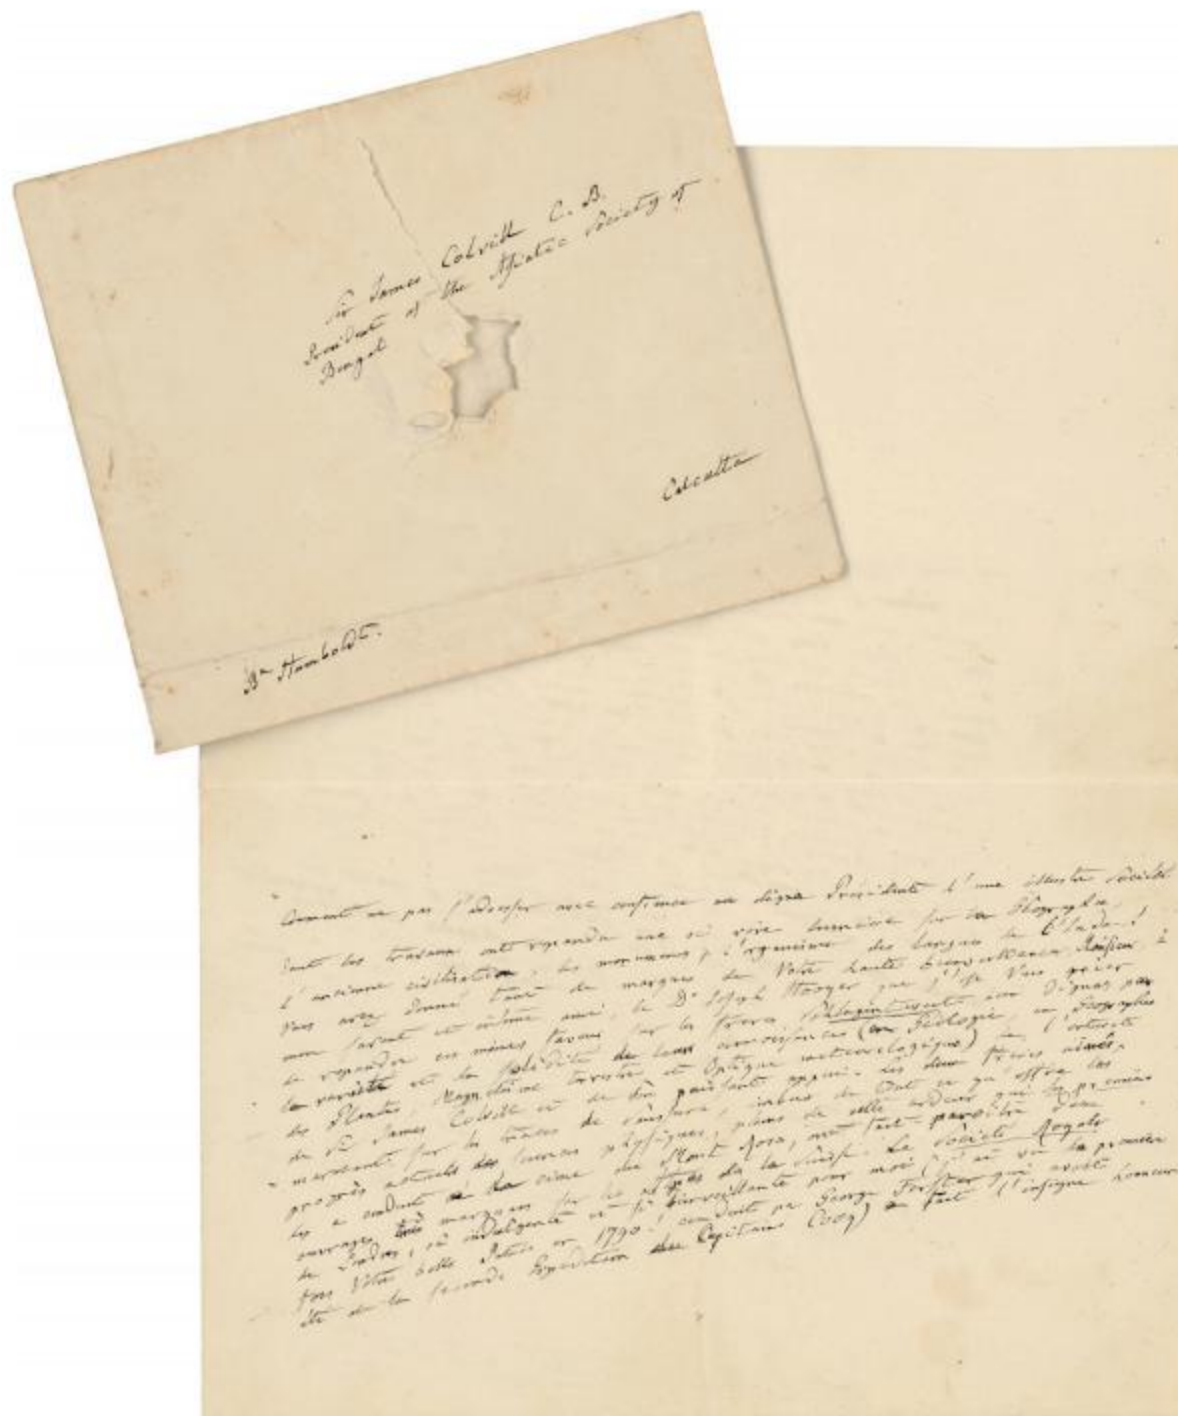 Sir James Colvill C. B.
President of the Asiatic Society of
Bengal
Calcutta
Bn Humboldt.
Comment ne pas s'adresser avec confiance au digne Président d'une illustre Société
dont les travaux ont repandu une si vive lumière sur la Géographie,
l'ancienne civilisation, les monumens, l'organisme des langues de l'Inde!
Vous avez donné tant de marques de Votre haute bienveillance, Monsieur, à
mon savant et intime ami, le Dr Joseph Hooger que j'ose Vous prier
de repandre ces mêmes faveurs sur les freres Schlagintweit, si dignes par
la variété et la solidité de leurs connoissances (en Géologie, en Géographie
des Plantes, Magnétisme terrestre et Optique météorologique) de l'interêt
de Sir James Colvill et de son puissant appui. Les deux frères ainés,
marchant sur les traces de Saussure, imbus de tout ce qu'offre les
progrès actuels des sciences physiques, pleins de cette ardeur qui les premiers
les a conduit à la cime du Mont Rosa, ont fait paroître deux
ouvrages très marquans sur les Alpes de la Suisse. La Société Royale
de Londres, si indulgente et si bienveillante pour moi (j'ai vu la première
fois Votre belle Patrie en 1790! conduit par George Forster qui avoit
été de la seconde Expédition du Capitaine Cook) a fait l'insigne honneur